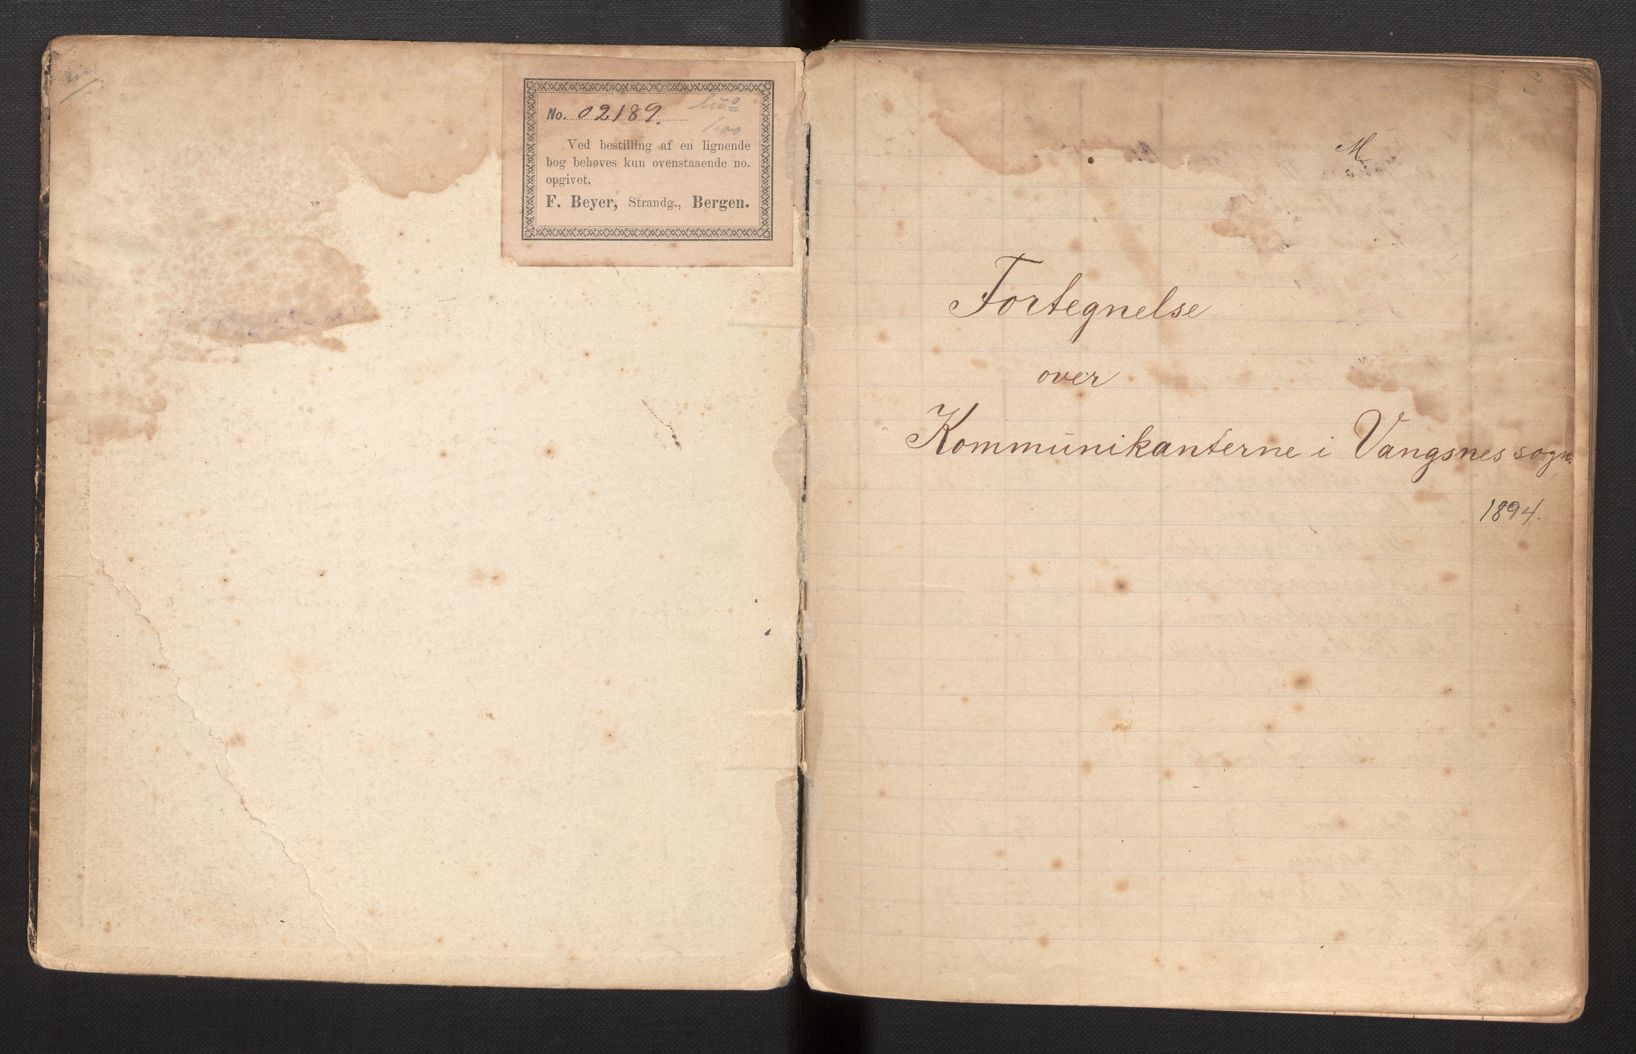 No. 02189.
Ved bestilling af en lignende
bog behøves kun ovenstaaende no.
opgivet.
F. Beyer, Strandg., Bergen.
M.
Fortegnelse
over
Kommunikanterne i Vangsnes sogn.
1894.